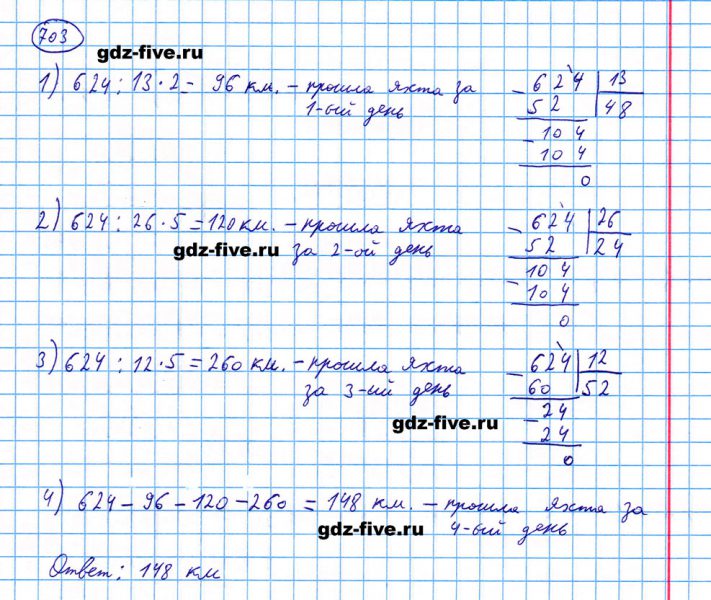 703
gdz-five.ru
1) 624 : 13 · 2 = 96 км. – прошла яхта за
1-ый день
2) 624 : 26 · 5 = 120 км. – прошла яхта
gdz-five.ru за 2-ой день
3) 624 : 12 · 5 = 260 км. – прошла яхта
за 3-ий день
gdz-five.ru
4) 624 – 96 – 120 – 260 = 148 км. – прошла яхта за
gdz-five.ru 4-ый день
Ответ: 148 км
– 624 | 13
52 | 48
– 104
104
0
– 624 | 26
52 | 24
– 104
104
0
– 624 | 12
60 | 52
– 24
24
0